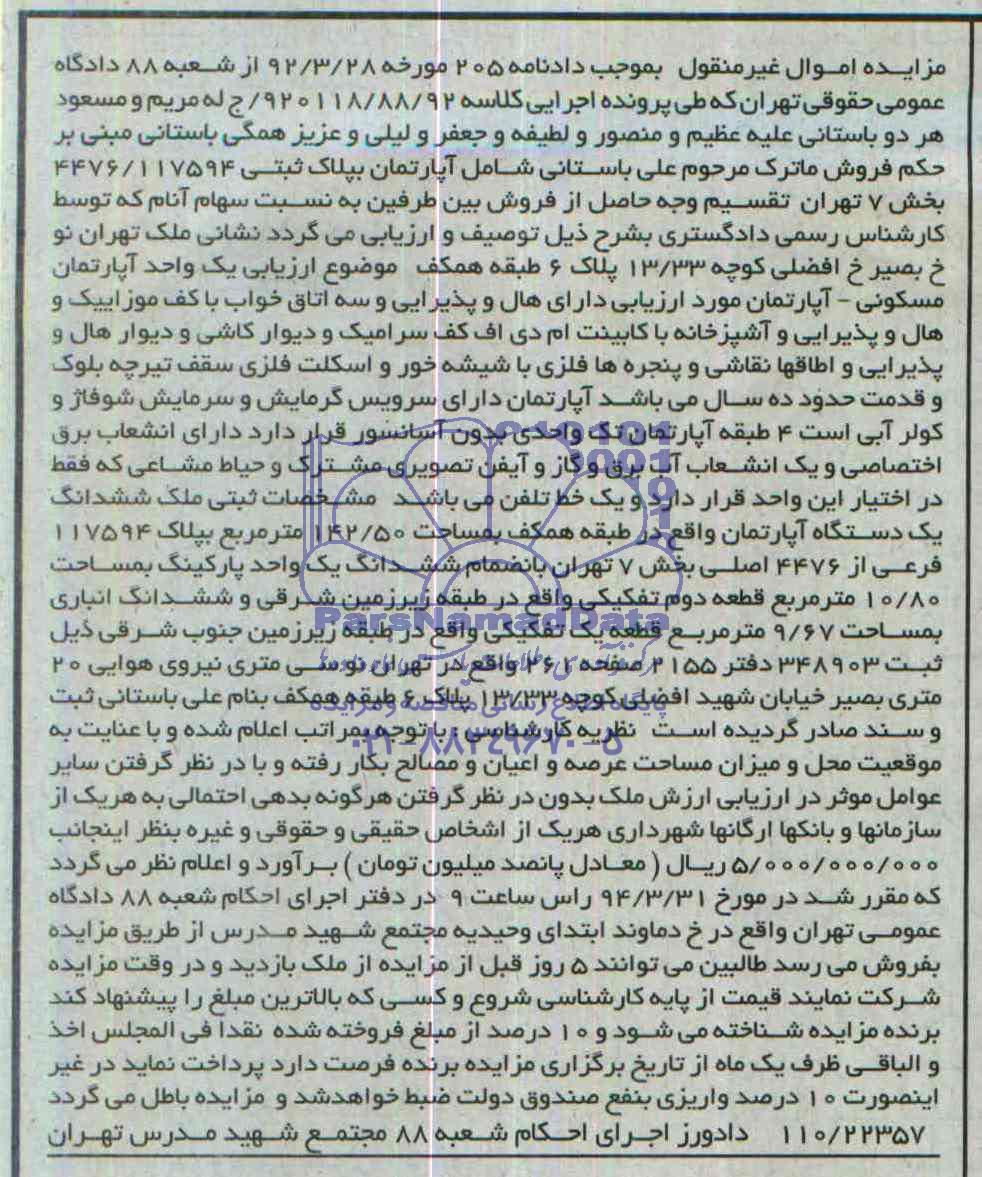 مزایـده امـوال غیرمنقول بموجب دادنامه ۲۰۵ مورخه ۹۲/۳/۲۸ از شـعبه ۸۸ دادگاه
عمومی حقوقی تهران که طی پرونده اجرایی کلاسه ۹۲۰۱۱۸/۸۸/۹۲/ج له مریم و مسعود
هر دو باستانی علیه عظیم و منصور و لطیفه و جعفر و لیلی و عزیز همگی باستانی مبنی بر
حکم فروش ماترک مرحوم علی باسـتانی شـامل آپارتمان بپلاک ثبتـی ۴۴۷۶/۱۱۷۵۹۴
بخش ۷ تهران تقسـیم وجه حاصل از فروش بین طرفین به نسـبت سهام آنام که توسط
کارشناس رسمی دادگستری بشرح ذیل توصیف و ارزیابی می گردد نشانی ملک تهران نو
خ بصیر خ افضلی کوچه ۱۳/۳۳ پلاک ۶ طبقه همکف موضوع ارزیابی یک واحد آپارتمان
مسکونی - آپارتمان مورد ارزیابی دارای هال و پذیرایی و سه اتاق خواب با کف موزاییک و
هال و پذیرایی و آشپزخانه با کابینت ام دی اف کف سرامیک و دیوار کاشی و دیوار هال و
پذیرایی و اطاقها نقاشی و پنجره ها فلزی با شیشه خور و اسکلت فلزی سقف تیرچه بلوک
و قدمت حدود ده سـال می باشـد آپارتمان دارای سرویس گرمایش و سرمایش شوفاژ و
کولر آبی است ۴ طبقه آپارتمان تک واحدی بدون آسانسور قرار دارد دارای انشعاب برق
اختصاصی و یک انشـعاب آب برق و گاز و آیفن تصویری مشـترک و حیاط مشـاعی که فقط
در اختیار این واحد قرار دارد و یک خط تلفن می باشـد مشـخصات ثبتی ملک ششدانگ
یک دسـتگاه آپارتمان واقع در طبقه همکف بمساحت ۱۴۲/۵۰ مترمربع بپلاک ۱۱۷۵۹۴
فرعـی از ۴۴۷۶ اصلـی بخش ۷ تهران بانضمام ششـدانگ یک واحد پارکینگ بمسـاحت
۱۰/۸۰ مترمربع قطعه دوم تفکیکی واقع در طبقه زیرزمین شـرقی و ششـدانگ انباری
بمسـاحت ۹/۶۷ مترمربـع قطعه یک تفکیکی واقع در طبقه زیرزمین جنوب شـرقی ذیل
ثبـت ۳۴۸۹۰۳ دفتر ۲۱۵۵ صفحه ۲۶۱ واقع در تهران نو سـی متری نیروی هوایی ۲۰
متری بصیر خیابان شهید افضلی کوچه ۱۳/۳۳ پلاک ۶ طبقه همکف بنام علی باستانی ثبت
و سـند صادر گردیده اسـت نظریه کارشناسی : با توجه بمراتب اعلام شده و با عنایت به
موقعیت محل و میزان مساحت عرصه و اعیان و مصالح بکار رفته و با در نظر گرفتن سایر
عوامل موثر در ارزیابی ارزش ملک بدون در نظر گرفتن هرگونه بدهی احتمالی به هریک از
سازمانها و بانکها ارگانها شهرداری هریک از اشخاص حقیقی و حقوقی و غیره بنظر اینجانب
۵/۰۰۰/۰۰۰/۰۰۰ ریـال ( معـادل پانصد میلیون تومان ) بـرآورد و اعلام نظر می گردد
که مقرر شـد در مورخ ۹۴/۳/۳۱ راس ساعت ۹ در دفتر اجرای احکام شعبه ۸۸ دادگاه
عمومـی تهران واقع در خ دماوند ابتدای وحیدیه مجتمع شـهید مـدرس از طریق مزایده
بفروش می رسد طالبین می توانند ۵ روز قبل از مزایده از ملک بازدید و در وقت مزایده
شـرکت نمایند قیمت از پایه کارشناسی شروع و کسـی که بالاترین مبلغ را پیشنهاد کند
برنده مزایده شـناخته می شـود و ۱۰ درصد از مبلغ فروخته شده نقدا فی المجلس اخذ
و الباقـی ظرف یک ماه از تاریخ برگزاری مزایده برنده فرصت دارد پرداخت نماید در غیر
اینصورت ۱۰ درصد واریزی بنفع صندوق دولت ضبط خواهدشد و مزایده باطل می گردد
۱۱۰/۲۲۳۵۷ دادورز اجـرای احـکام شـعبه ۸۸ مجتمـع شـهید مـدرس تهـران
ParsNamadData
پایگاه اطلاع رسانی مناقصه و مزایده
۰۲۱-۸۸۳۴۹۶۷۰-۵